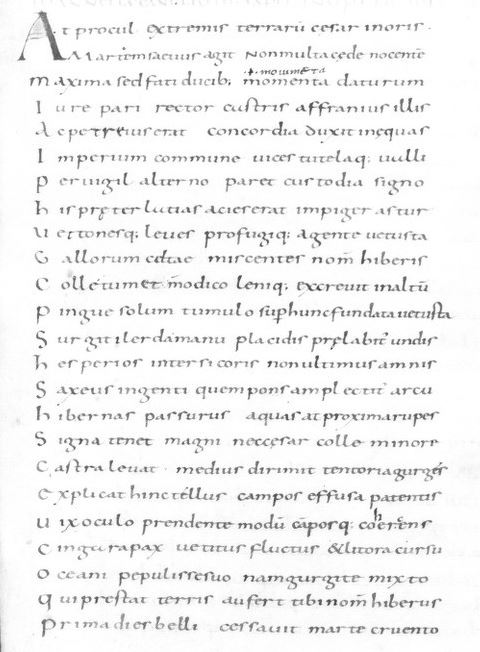 At procul extremis terrarū cesar inoris.
Martem saeuus agit Nonmulta cęde nocente
+. movimeta
maxima sed fati ducib; momenta daturum
Iure pari rector custris affranius illis
Ac petreius erat concordia duxit inęquas
Imperium commune uices tutelaq; uulli
Peruigil alterno paret custodia signo
his pręter lutias acies erat impiger astur
Uettonesq; leues profugiq; agente uetusta
Gallorum celtae miscentes nom̄ hiberis
Colle tumet m̄odico leniq; excreuit inaltū
Pingue solum tumulo sup hunc fundata uetusta
Surgit ilerda manu placidis pręlabit undis
hesperios inter sicoris nonultimus amnis
Saxeus ingenti quem pons amplectit arcu
hibernas passurus aquas at proxima rupes
Signa tenet magni nec cesar colle minore
Castra leuat. medius dirimit tentoria gurges
Explicat hinc tellus campos effusa patentis
Uix oculo prendente modū cāposq; coherens
Cinga rapax uetitus fluctus & litora cursu
Oceani pepulisse suo nam gurgite mixto
Qui prestat terris aufert tibi nom̄ hiberus
Prima dies belli cessauit marte cruento